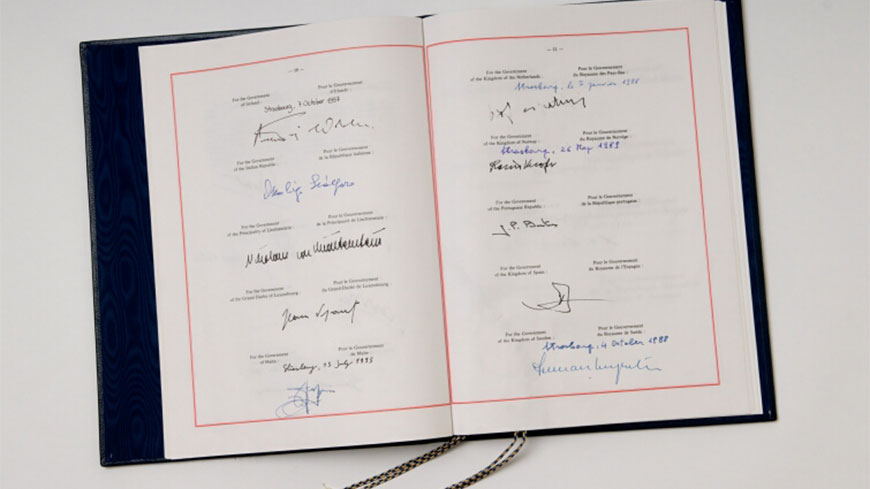 — 10 —
For the Government
of Ireland :
Pour le Gouvernement
d'Irlande :
Strasbourg, 7 October 1987
For the Government
of the Italian Republic :
Pour le Gouvernement
de la République italienne :
For the Government
of the Principality of Liechtenstein :
Pour le Gouvernement
de la Principauté de Liechtenstein :
Nikolaus von Liechtenstein
For the Government
of the Grand Duchy of Luxembourg :
Pour le Gouvernement
du Grand-Duché de Luxembourg :
Jean
For the Government
of Malta :
Pour le Gouvernement
de Malte :
Strasbourg, 13 July 1995
— 11 —
For the Government
of the Kingdom of the Netherlands :
Pour le Gouvernement
du Royaume des Pays-Bas :
Strasbourg, le 7 janvier
For the Government
of the Kingdom of Norway :
Pour le Gouvernement
du Royaume de Norvège :
Strasbourg, 26 May 1989
For the Government
of the Portuguese Republic :
Pour le Gouvernement
de la République portugaise :
For the Government
of the Kingdom of Spain :
Pour le Gouvernement
du Royaume de l'Espagne :
For the Government
of the Kingdom of Sweden :
Pour le Gouvernement
du Royaume de Suède :
Strasbourg, 4 October 1988